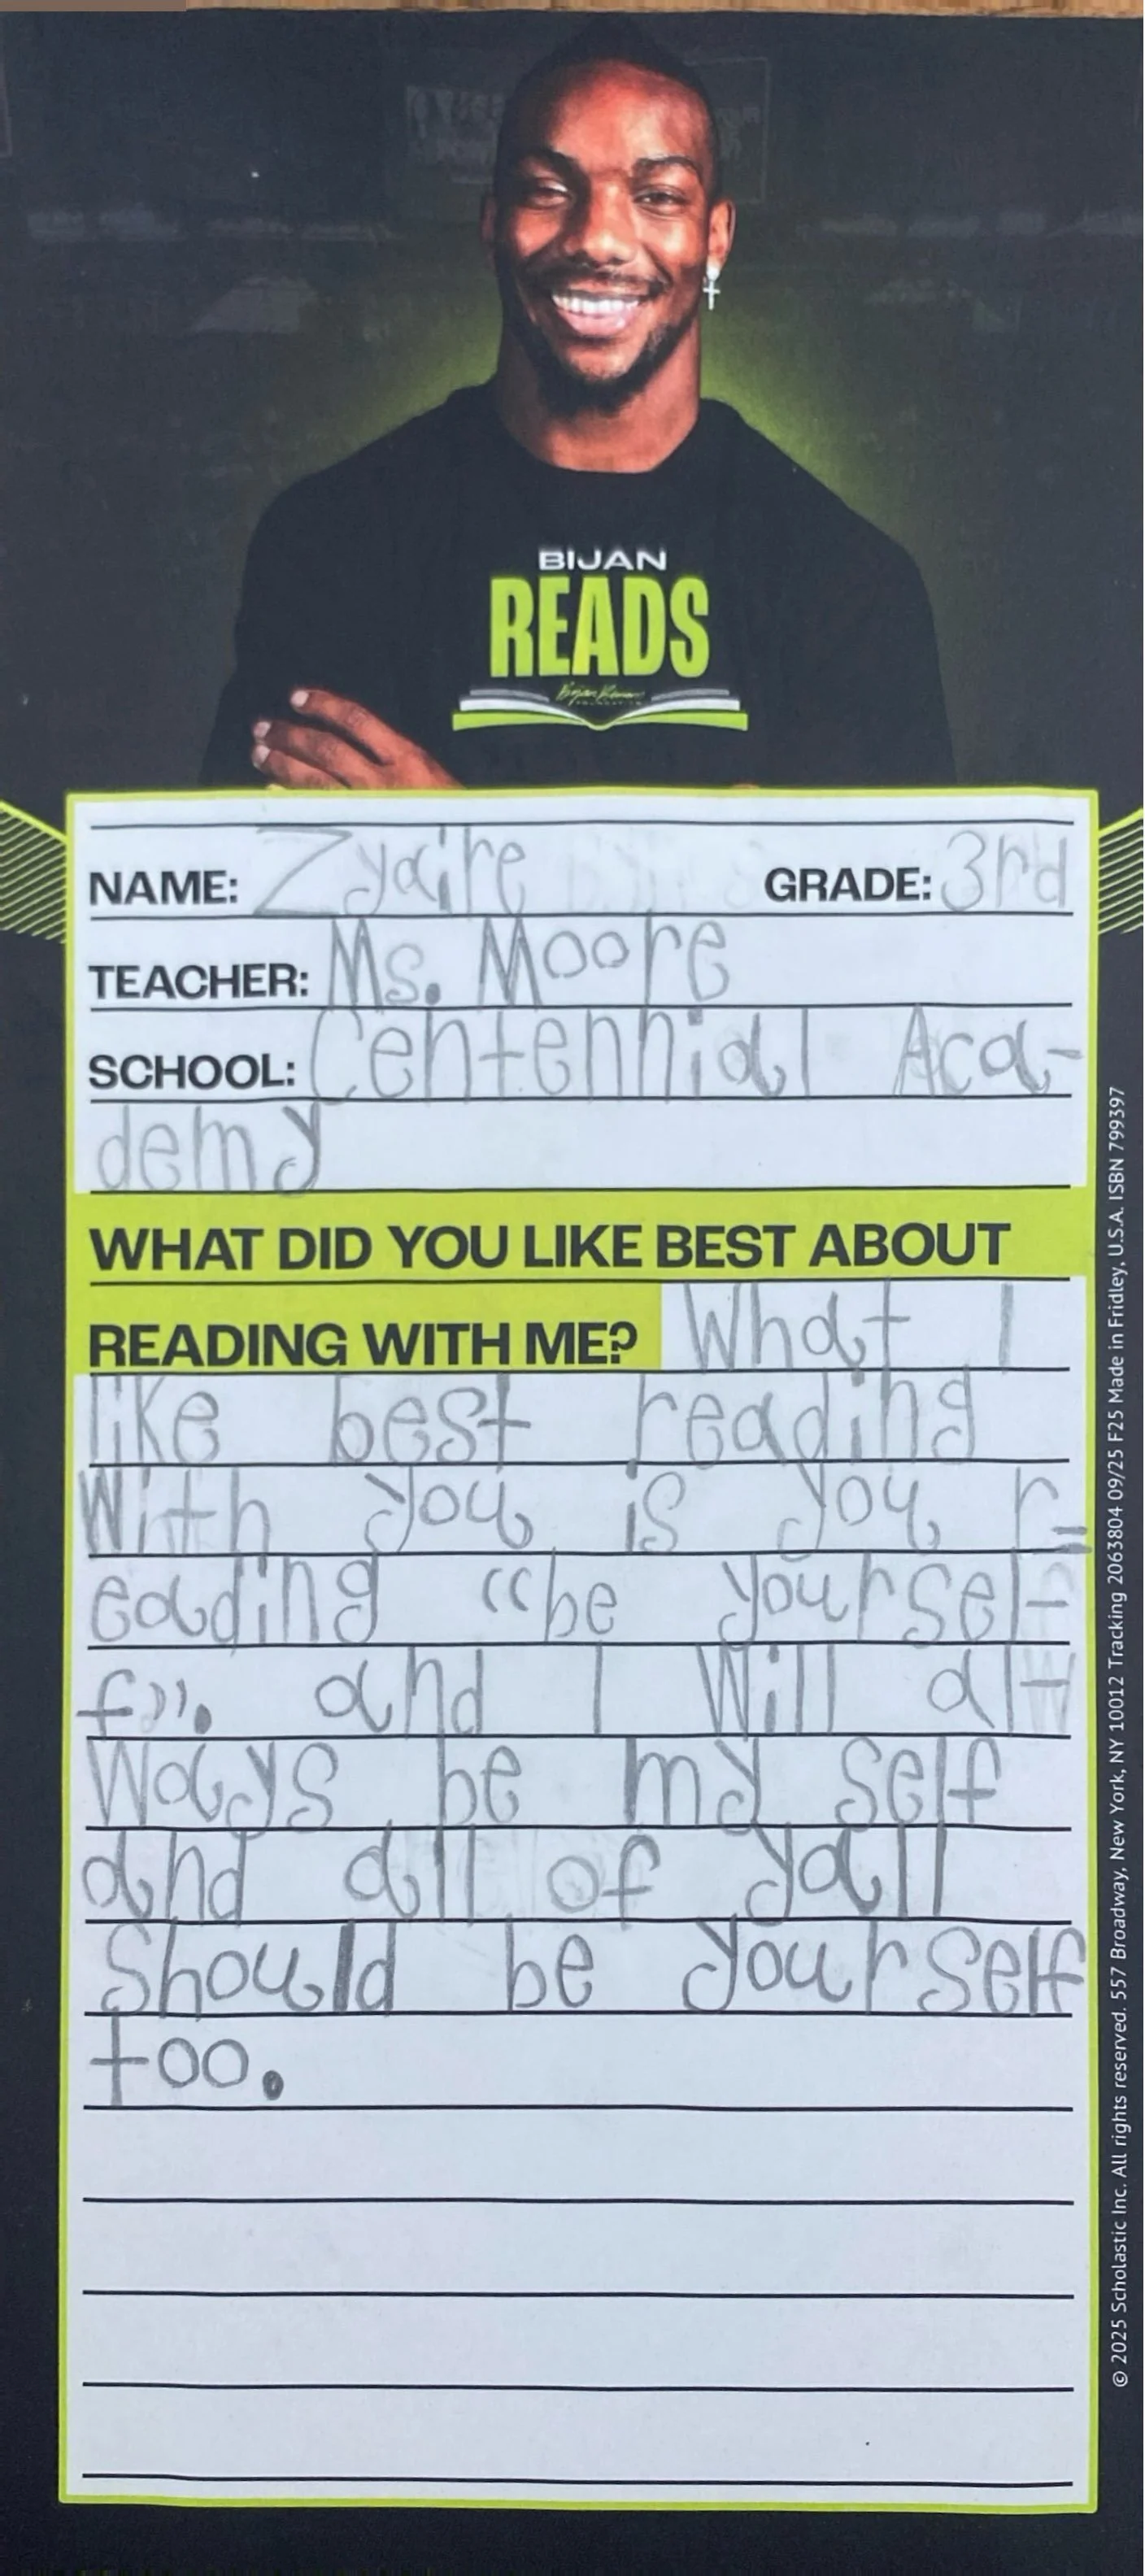 BIJAN
READS
Bijan Robinson
FOUNDATION
NAME: Zyaire GRADE: 3rd
TEACHER: Ms. Moore
SCHOOL: Centennial Aca-
demy
WHAT DID YOU LIKE BEST ABOUT
READING WITH ME? What I
like best reading
With you is you r=
eading “be yoursel-
f”. and I Will al-
Ways be my self
and all of yall
Should be yourself
too.
© 2025 Scholastic Inc. All rights reserved. 557 Broadway, New York, NY 10012 Tracking 2063804 09/25 F25 Made in Fridley, U.S.A. ISBN 799397